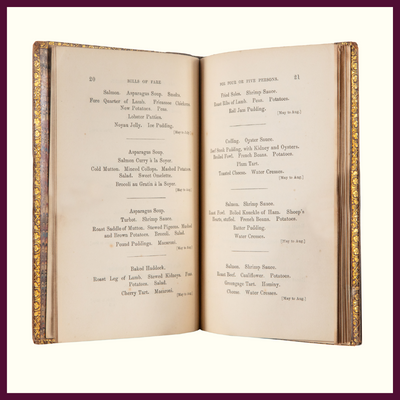 20 BILLS OF FARE
Salmon. Asparagus Soup. Smelts.
Fore Quarter of Lamb. Fricassee Chicken.
New Potatoes. Peas.
Lobster Patties.
Noyau Jelly. Ice Pudding.
[May to July.]
Asparagus Soup.
Salmon Curry à la Soyer.
Cold Mutton. Minced Collops. Mashed Potatoes.
Salad. Sweet Omelette.
Brocoli au Gratin à la Soyer.
[May to Aug.]
Asparagus Soup.
Turbot. Shrimp Sauce.
Roast Saddle of Mutton. Stewed Pigeons. Mashed
and Brown Potatoes. Brocoli. Salad.
Pound Puddings. Macaroni.
[May to Aug.]
Baked Haddock.
Roast Leg of Lamb. Stewed Kidneys. Peas.
Potatoes. Salad.
Cherry Tart. Macaroni.
[May to Aug.]
FOR FOUR OR FIVE PERSONS. 21
Fried Soles. Shrimp Sauce.
Roast Ribs of Lamb. Peas. Potatoes.
Roll Jam Pudding.
[May to Aug.]
Codling. Oyster Sauce.
Beef Steak Pudding, with Kidney and Oysters.
Boiled Fowl. French Beans. Potatoes.
Plum Tart.
Toasted Cheese. Water Cresses.
[May to Aug.]
Salmon. Shrimp Sauce.
Roast Fowl. Boiled Knuckle of Ham. Sheep's
Hearts, stuffed. French Beans. Potatoes.
Batter Pudding.
Water Cresses.
[May to Aug.]
Salmon. Shrimp Sauce.
Roast Beef. Cauliflower. Potatoes.
Greengage Tart. Hominy.
Cheese. Water Cresses.
[May to Aug.]